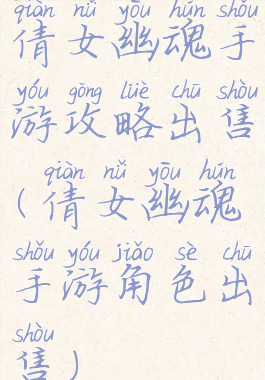 qiàn nǚ yōu hún shǒu
倩女幽魂手
yóu gōng lüè chū shòu
游攻略出售
qiàn nǚ yōu hún
(倩女幽魂
shǒu yóu jiǎo sè chū
手游角色出
shòu
售)